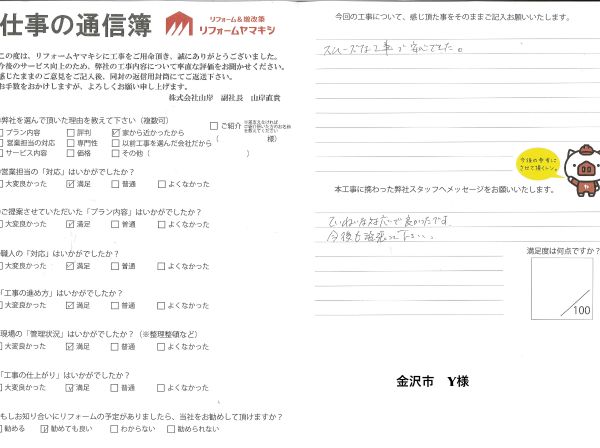 仕事の通信簿
リフォーム&増改築
リフォームヤマキシ
この度は、リフォームヤマキシに工事をご用命頂き、誠にありがとうございました。
今後のサービス向上のため、弊社の工事内容について率直な評価をお聞かせください。
感じたままのご意見をご記入後、同封の返信用封筒にてご返送下さい。
お手数をおかけしますが、よろしくお願い申し上げます。
株式会社山岸 副社長 山岸直貴
弊社を選んで頂いた理由を教えて下さい(複数可)
プラン内容 □評判 ☑家から近かったから
営業担当の対応 □専門性 □以前工事を選んだ会社だから
サービス内容 □価格 □その他(
□ご紹介
( 様)
営業担当の「対応」はいかがでしたか?
大変良かった ☑満足 □普通 □よくなかった
ご提案させていただいた「プラン内容」はいかがでしたか?
大変良かった ☑満足 □普通 □よくなかった
職人の「対応」はいかがでしたか?
大変良かった ☑満足 □普通 □よくなかった
「工事の進め方」はいかがでしたか?
大変良かった ☑満足 □普通 □よくなかった
現場の「管理状況」はいかがでしたか?(※整理整頓など)
大変良かった ☑満足 □普通 □よくなかった
「工事の仕上がり」はいかがでしたか?
大変良かった ☑満足 □普通 □よくなかった
もしお知り合いにリフォームの予定がありましたら、当社をお勧めして頂けますか?
勧める ☑勧めても良い □わからない □勧められない
今回の工事について、感じ頂た事をそのままご記入お願いいたします。
スムーズな工事で安心でした。
今後の参考に
させて頂くニャン。
本工事に携わった弊社スタッフへメッセージをお願いいたします。
ていねいな対応で良かったです。
今後も頑張って下さい。
満足度は何点ですか?
/100
金沢市 Y様